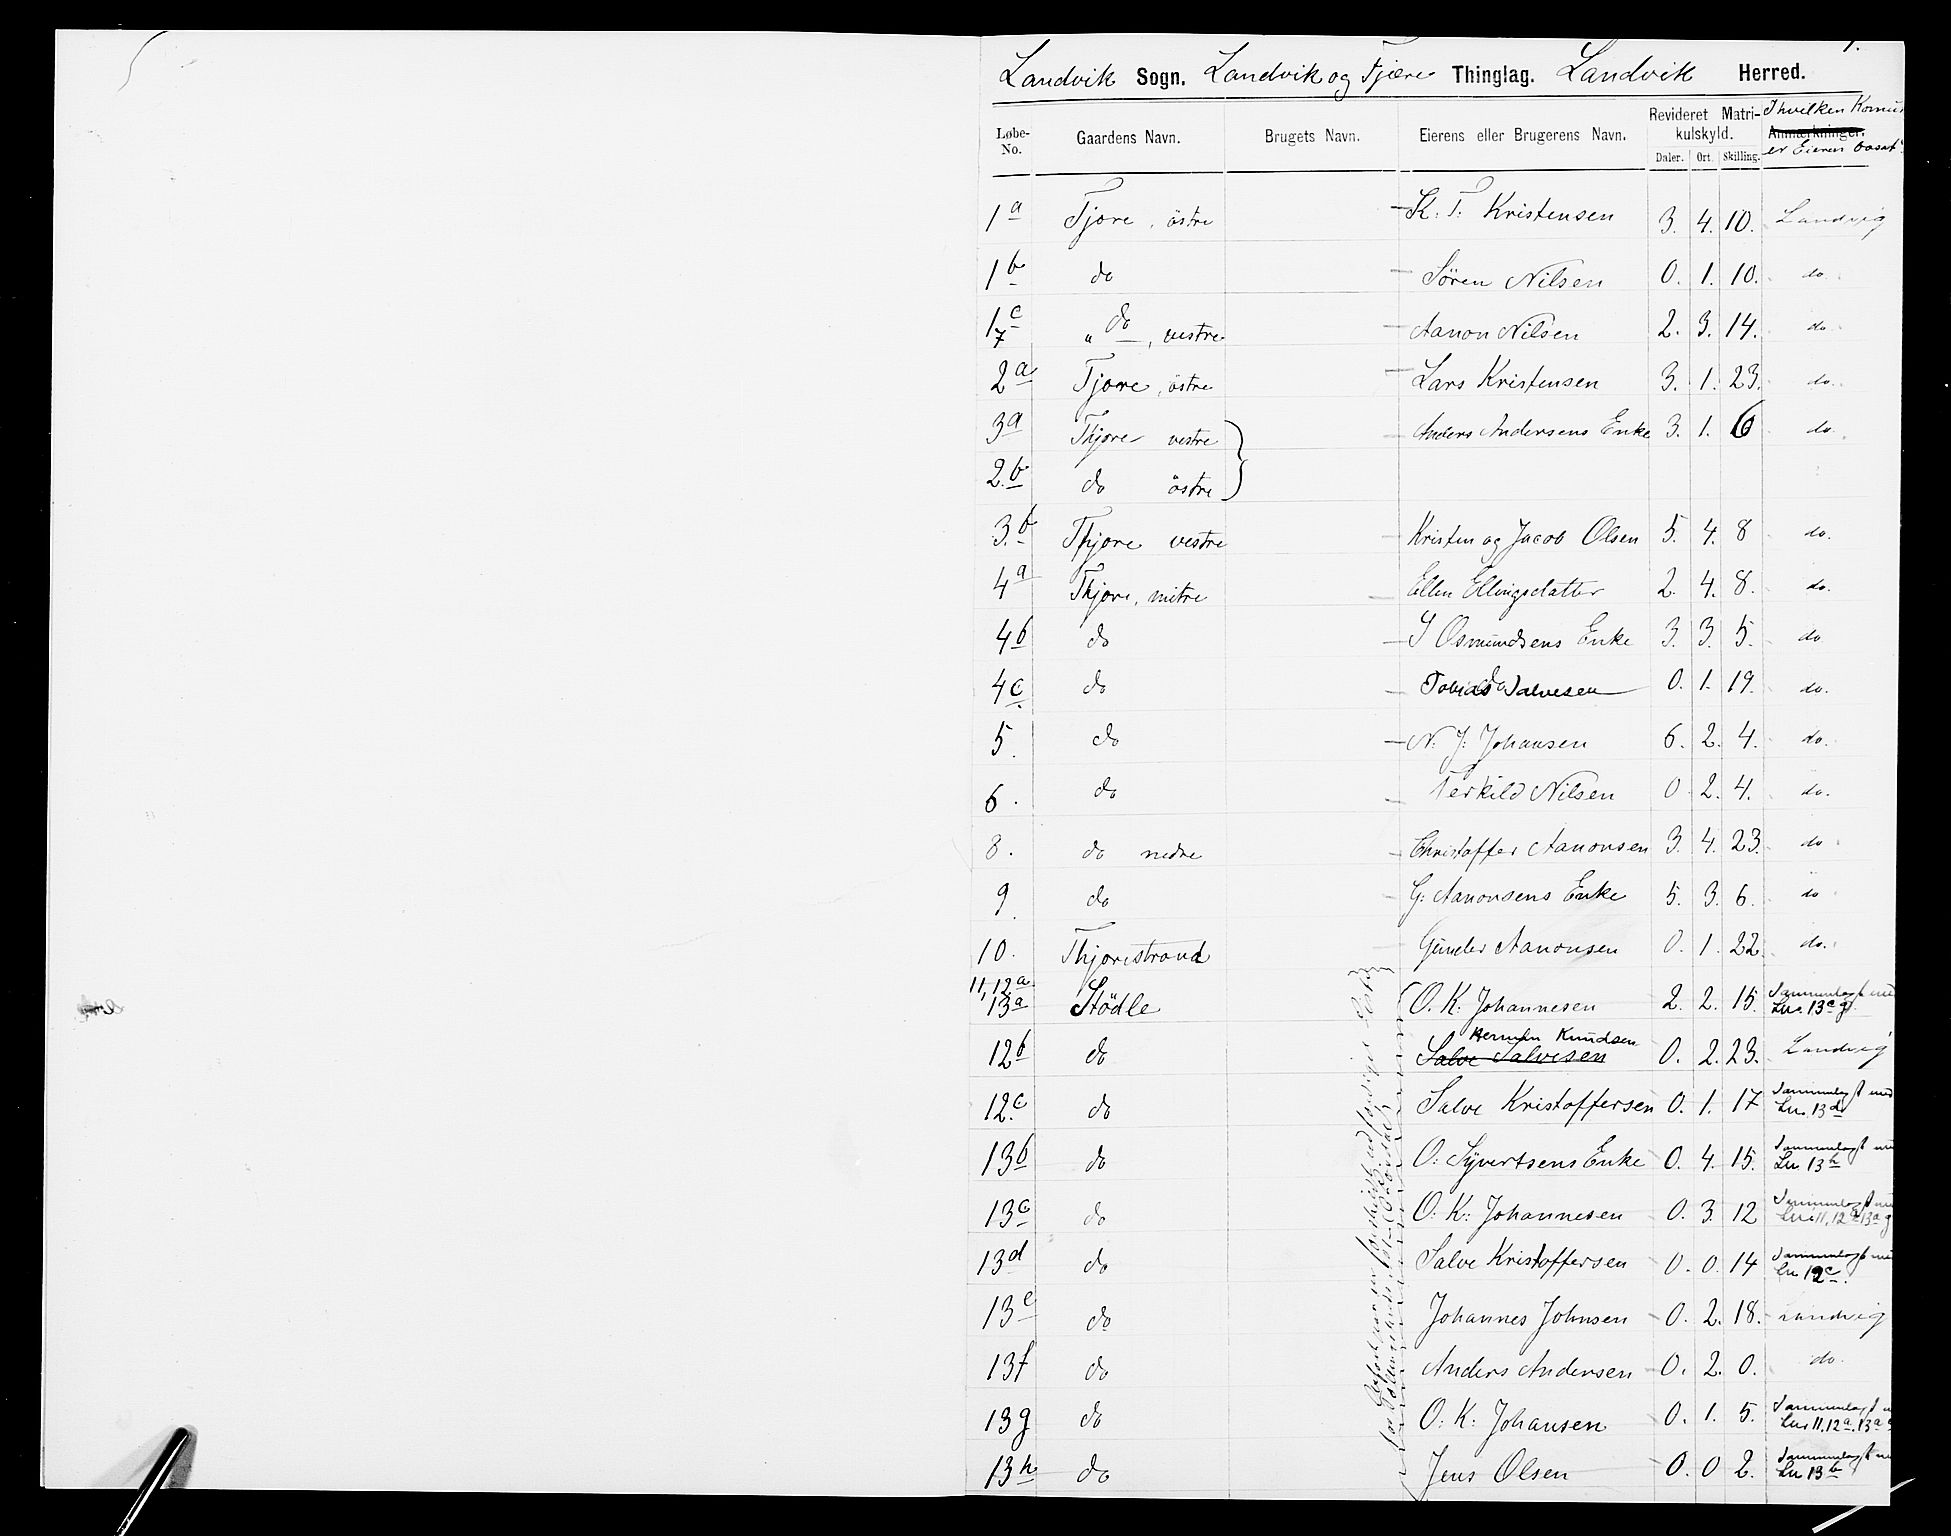 1.
Landvik Sogn. Landvik og Fjære Thinglag. Landvik Herred.
Løbe-No. Gaardens Navn. Brugets Navn. Eierens eller Brugerens Navn. Revideret Matrikulskyld. Daler. Ort. Skilling. Anmærkninger. Ihvilken Komun er Eieren bosat
1a Tjore, östre K. T. Kristensen 3. 4. 10. Landvig
1b do Sören Nilsen 0. 1. 10. do.
1c 7 " do, vestre Aanon Nilsen 2. 3. 14. do.
2a Tjore, östre Lars Kristensen 3. 1. 23. do.
3a Thjore vestre Anders Andersens Enke 3. 1. 6 do.
2b do östre
3.b Thjore vestre Kristen og Jacob Olsen 5. 4. 8 do.
4a Thjore, mitre Ellen Ellingsdatter 2. 4. 8. do.
4b do J Osmundsens Enke 3. 3. 5. do
4c do Tobias Salvesen 0. 1. 19. do.
5. do N. J. Johansen 6. 2. 4. do.
6. do Terkild Nilsen 0 2. 4. do.
8. do nedre Christoffer Aanonsen 3. 4. 23. do
9. do G. Aanonsens Enke 5. 3. 6. do
10. Thjorestrand Gunder Aanonsen 0. 1. 22. do.
11, 12a 13a Stödle O. K. Johannesen 2. 2. 15. Sammenlagt med Lnr. 13c g.
12b do Salve Salvesen Herman Knudsen 0. 2. 23. Landvig
12.c do Salve Kristoffersen 0. 1. 17 Sammenlagt med Lnr. 13d
13b do O. Syvertsens Enke 0. 4. 15. Sammenlagt med Lnr. 13h
13c do O. K. Johannesen 0. 3. 12 Sammenlagt med Lnr. 11, 12a 13a g
13d do Salve Kristoffersen 0. 0. 14 Sammenlagt med Lnr 12c.
13e do Johannes Johnsen 0. 2. 18. Landvig
13f do Anders Andersen 0. 2. 0. do.
13g do O. K. Johansen 0. 1. 5. Sammenlagt m Lnr 11, 12a, 13a
13h do Jens Olsen 0. 0 2. Sammenlagt m Lnr 13b